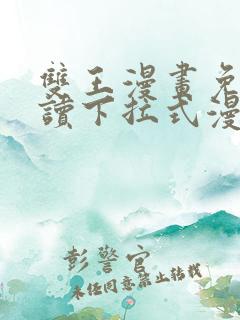 雙王漫畫免
讀下拉式漫
彭警官
未任同意禁止转载